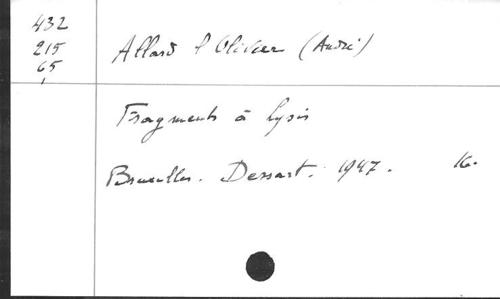 432
215
65
Allard l'Olivier (André)
Fragments à Lysis
Bruxelles. Dessart. 1947. 16.